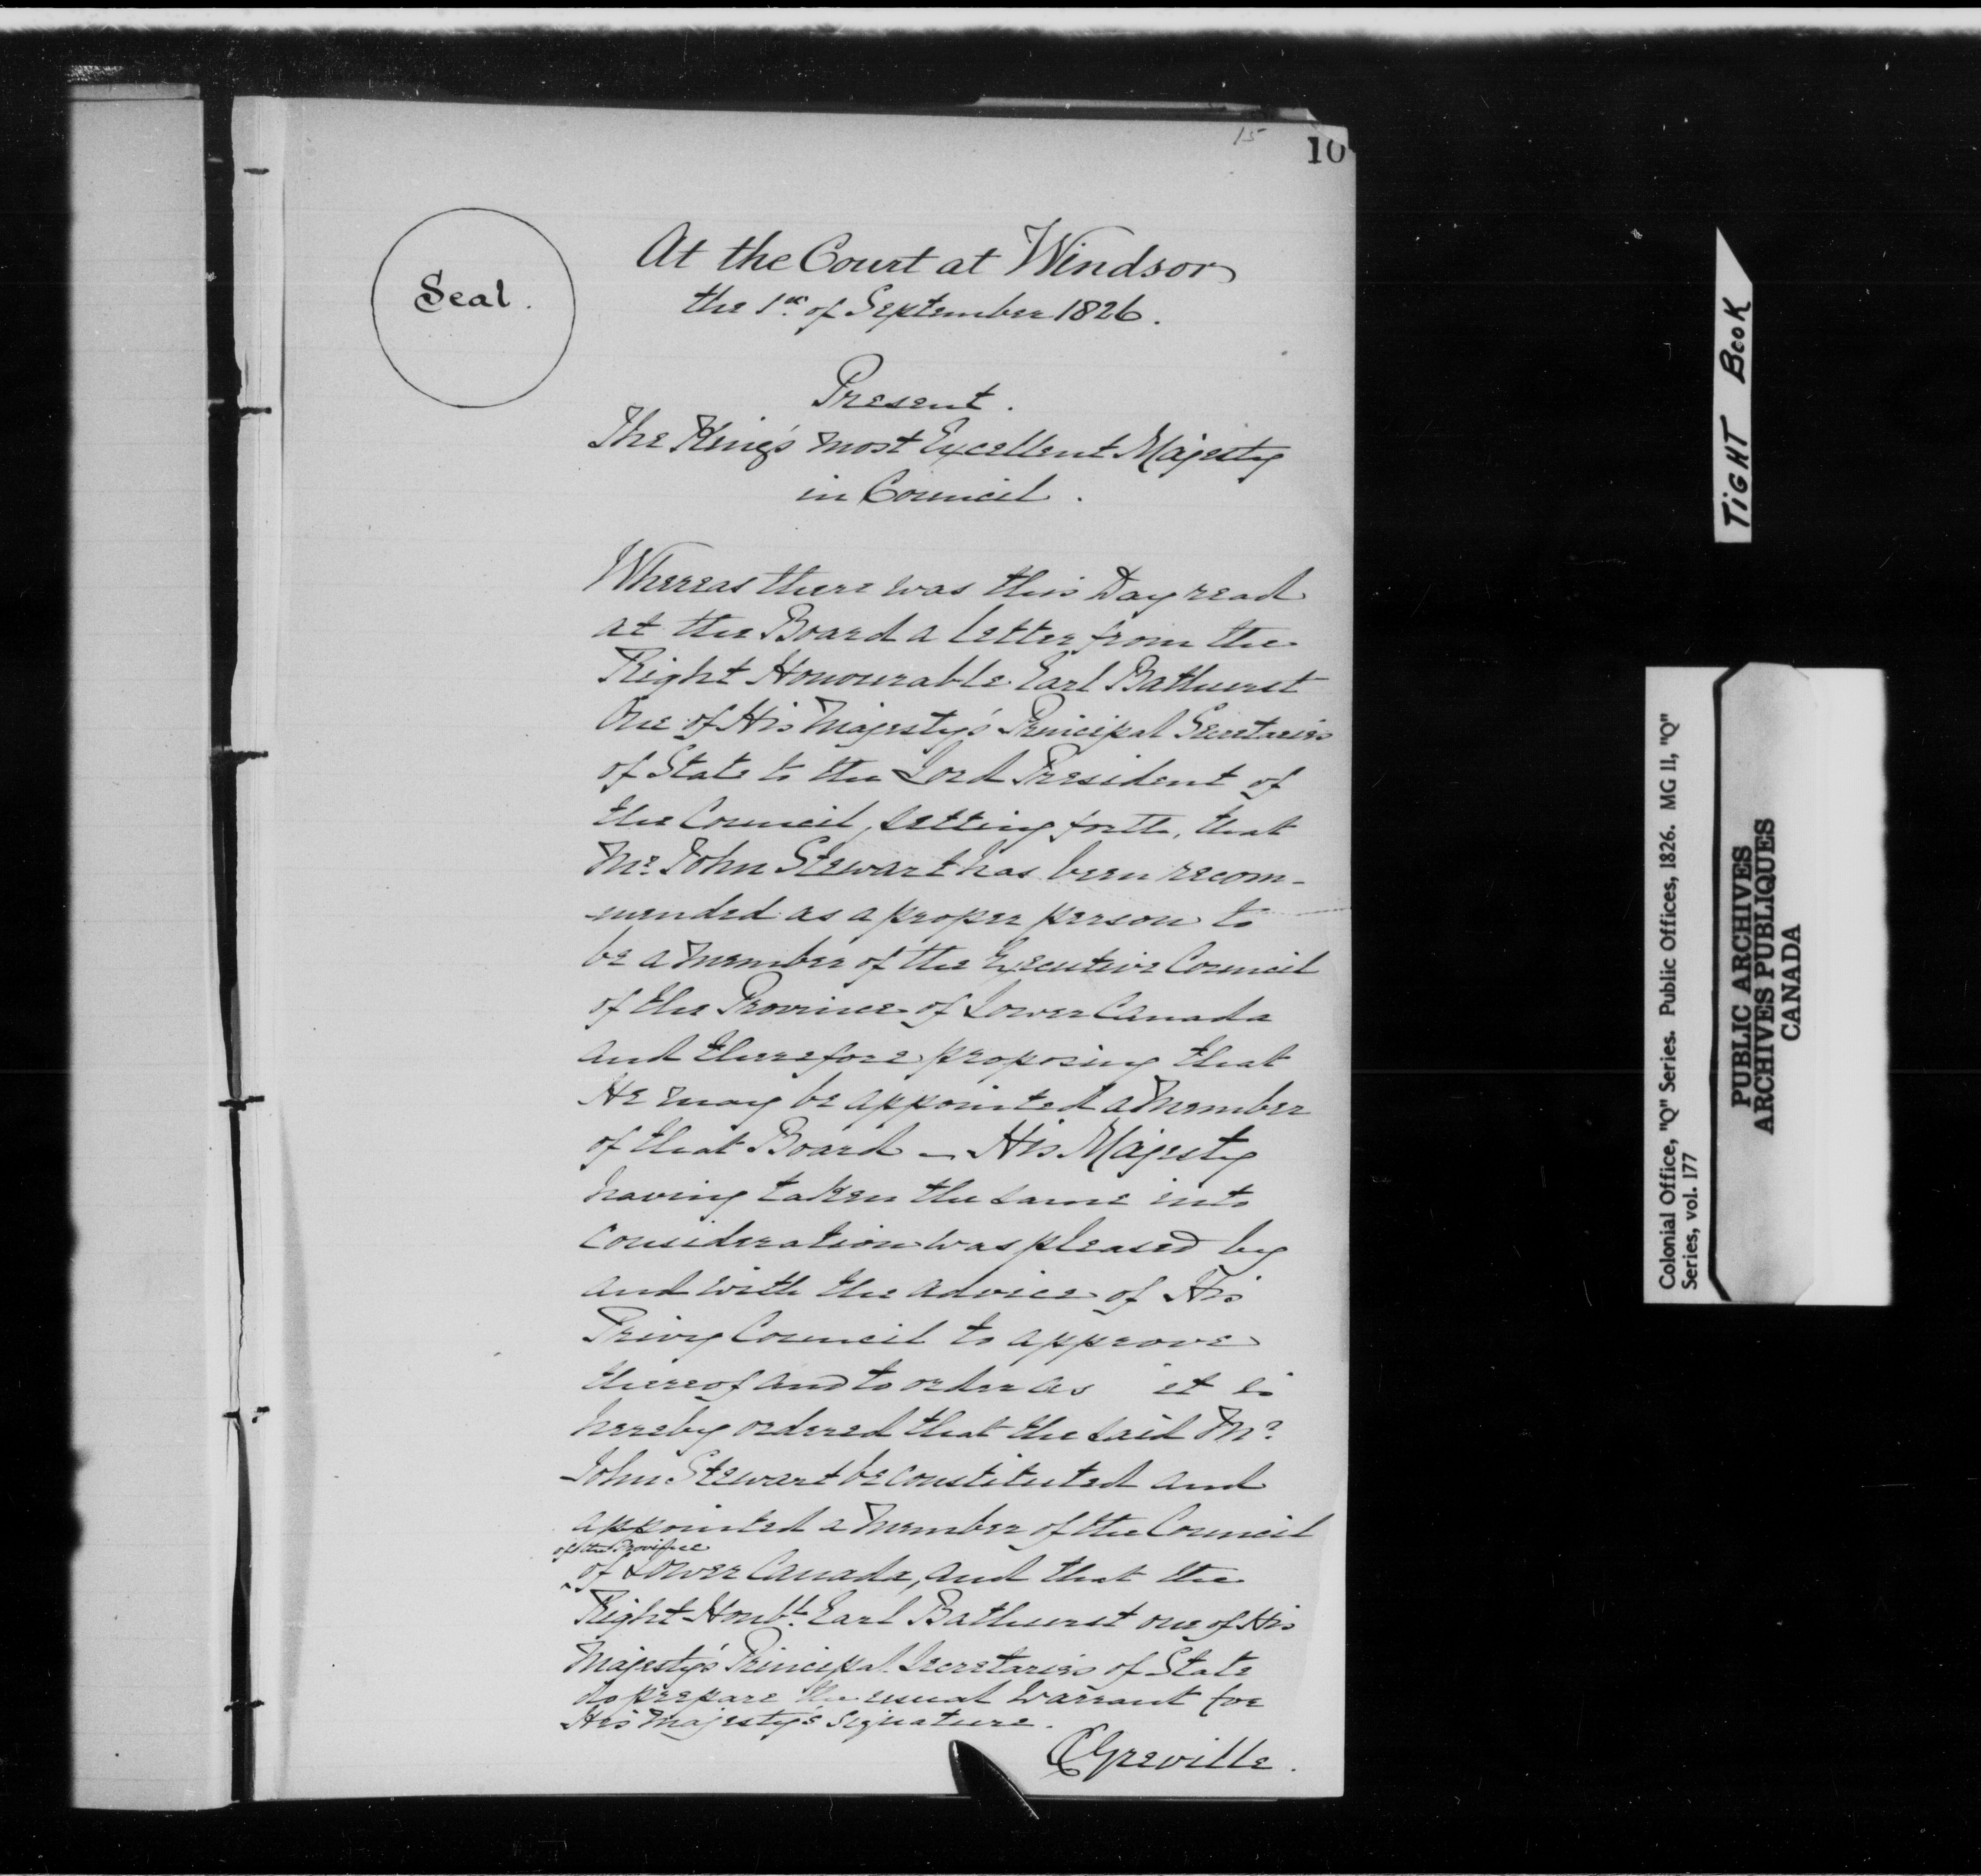 15
10
Seal.
At the Court at Windsor
the 1st of September 1826.
Present.
The King's most Excellent Majesty
in Council.
Whereas there was this Day read
at the Board a letter from the
Right Honourable Earl Bathurst
One of His Majesty's Principal Secretaries
of State to the Lord President of
the Council, setting forth, that
Mr. John Stewart has been recom-
-mended as a proper person to
be a Member of the Executive Council
of the Province of Lower Canada
and therefore proposing that
He may be appointed a Member
of that Board — His Majesty
having taken the same into
consideration was pleased by
and with the advice of His
Privy Council to approve
thereof and to order as it is
hereby ordered that the said Mr.
John Stewart be constituted and
appointed a Member of the Council
of the Province
of Lower Canada, and that the
Right Honbl. Earl Bathurst one of His
Majesty's Principal Secretaries of State
do prepare the usual Warrant for
His Majesty's Signature.
C Greville.
TIGHT BOOK
Colonial Office, "Q" Series. Public Offices, 1826. MG 11, "Q"
Series, vol. 177
PUBLIC ARCHIVES
ARCHIVES PUBLIQUES
CANADA